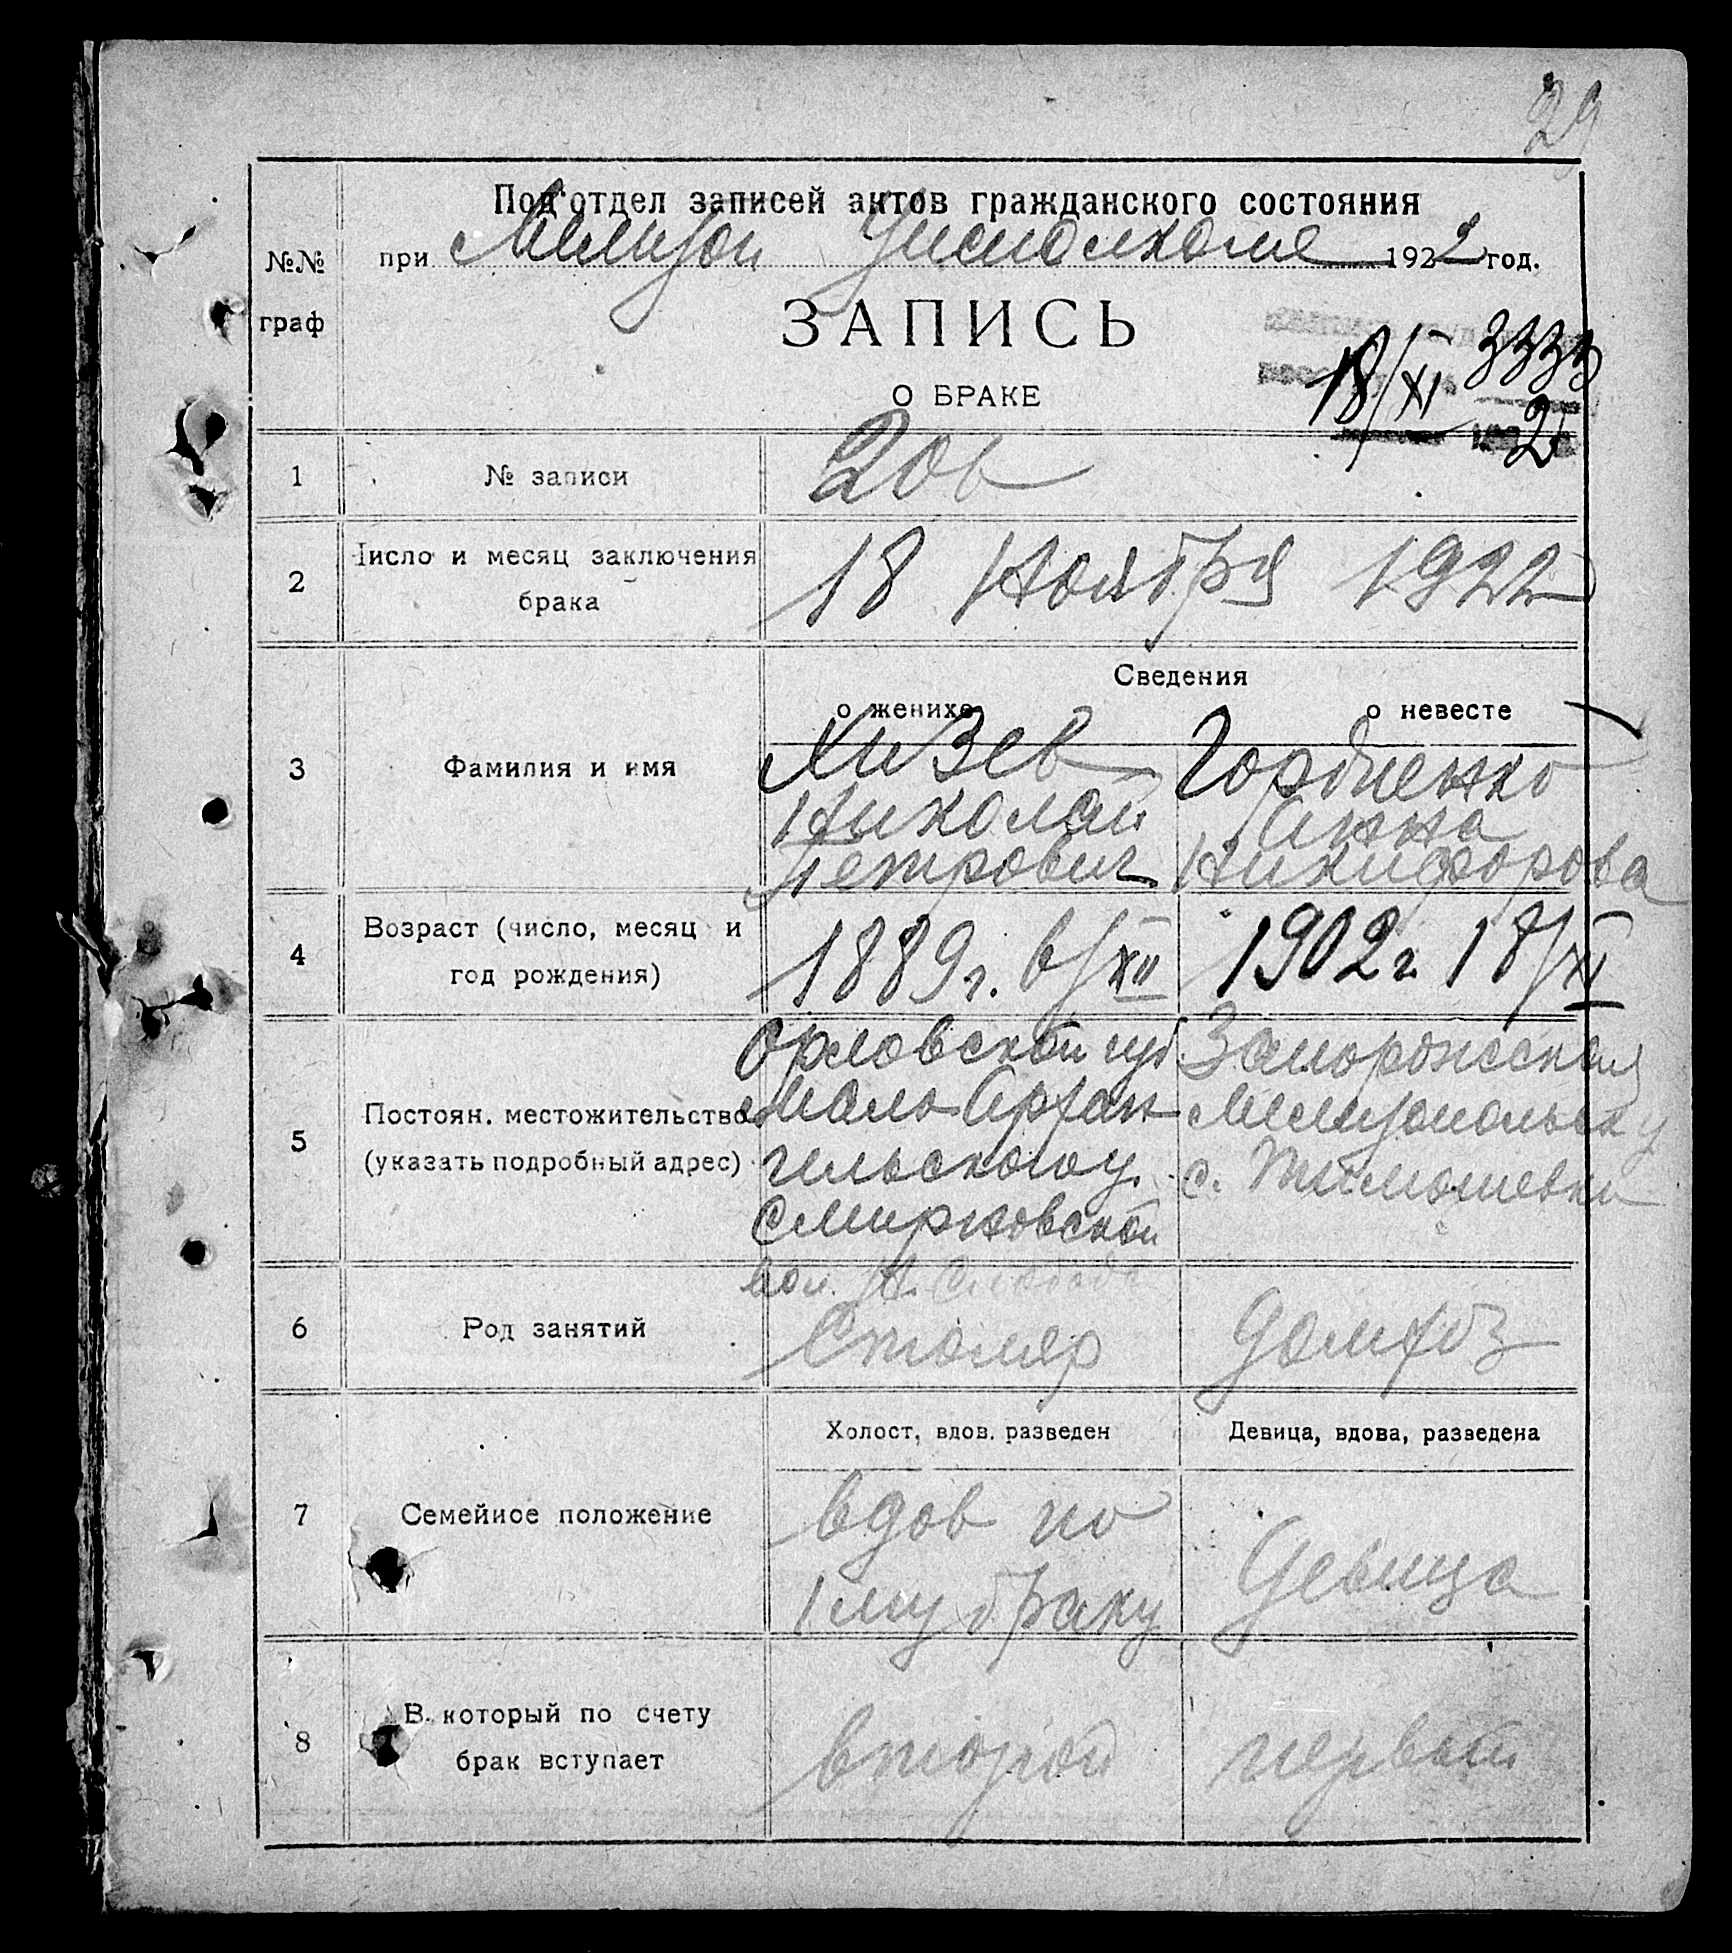 29
Под'отдел записей актов гражданского состояния
№№ граф
при Мелитоп Уисполкоме 1922 год.
ЗАПИСЬ
О БРАКЕ
3333
18/XI 2
1 № записи 206
2 Число и месяц заключения брака 18 Ноября 1922
Сведения
о женихе о невесте
3 Фамилия и имя
Хизев Гордиенко
Николай Анна
Петрович Никифорова
4 Возраст (число, месяц и год рождения) 1889 г. 6/XII 1902 г. 18/XI
5 Постоян. местожительство (указать подробный адрес)
Орловской губ Запорожская
Мало Архан Мелитопольск у
гельского у. с. Тимошевки
Смирновской
вол. Слобода
6 Род занятий Столяр домхоз
Холост, вдов. разведен Девица, вдова, разведена
7 Семейное положение
вдов по Девица
1 му браку
8 В который по счету брак вступает второй первый